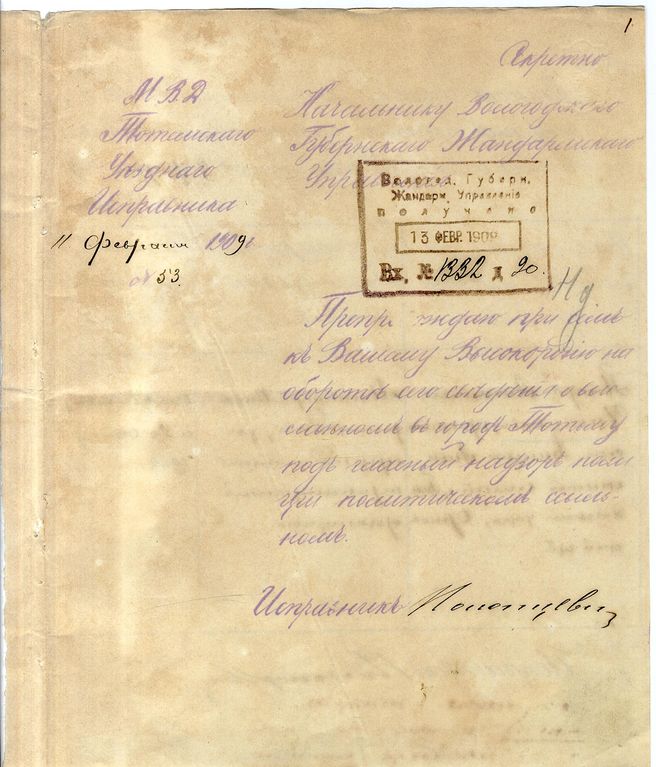 1
Секретно
МВД
Тотемскаго
Уѣзднаго
Исправника
11 Февраля 1909 г.
№ 53.
Начальнику Вологодскаго
Губернскаго Жандармскаго
Управленія
Вологод. Губерн.
Жандарм. Управленіе
получено
13 ФЕВР. 1909
Вх. № 1332 д 20.
Препровождаю при семъ
къ Вашему Высокородію на
оборотѣ сего свѣдѣнія о выс-
ланномъ въ городъ Тотьму
подъ гласный надзоръ поли
ціи политическомъ ссыль-
номъ.
Исправникъ